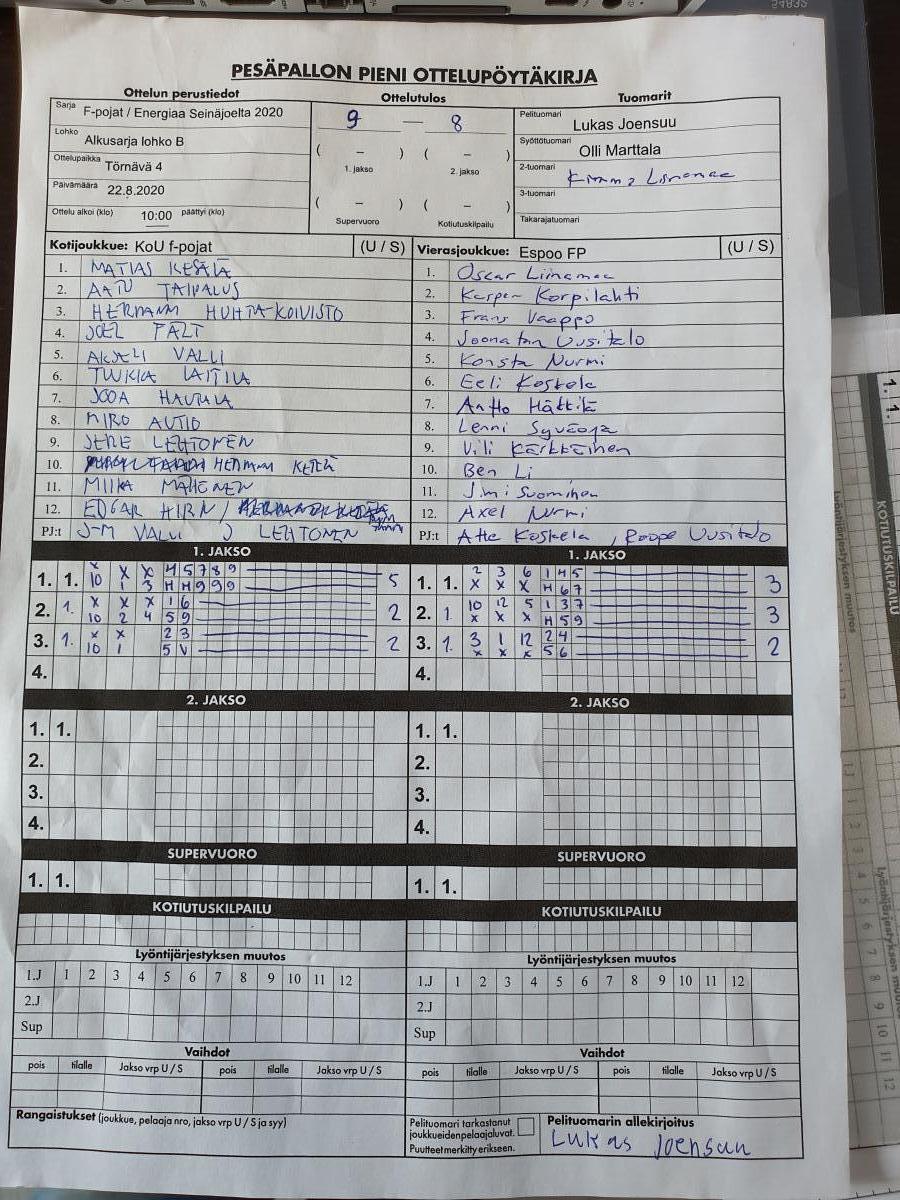 PESÄPALLON PIENI OTTELUPÖYTÄKIRJA
Ottelun perustiedot Ottelutulos Tuomarit
Sarja F-pojat / Energiaa Seinäjoelta 2020
Lohko Alkusarja lohko B
Ottelupaikka Törnävä 4
Päivämäärä 22.8.2020
Ottelu alkoi (klo) 10:00 päättyi (klo)
9 — 8
( – ) ( – )
1. jakso 2. jakso
( – ) ( – )
Supervuoro Kotiutuskilpailu
Pelituomari Lukas Joensuu
Syöttötuomari Olli Marttala
2-tuomari
3-tuomari
Takarajatuomari
Kotijoukkue: KoU f-pojat (U / S)
1. MATIAS KESÄLÄ
2. AATU TAIPALUS
3. HERMANNI HUHTA-KOIVISTO
4. JOEL PALT
5. AKSELI VALLI
6. TUUKKA LAITILA
7. JOOA HAUTALA
8. MIRO AUTIO
9. JERE LEHTONEN
10. HERMANNI
11. MIIKA
12. EDGAR HIRN /
PJ:t J-M VALLI J LEHTONEN
Vierasjoukkue: Espoo FP (U / S)
1. Oscar Liinamaa
2. Kasper Korpilahti
3. Frans Vaappo
4. Joonatan Uusitalo
5. Konsta Nurmi
6. Eeli Koskela
7. Antto Hättilä
8. Lenni Syväoja
9. Vili Kärkkäinen
10. Ben Li
11. Jimi Suominen
12. Axel Nurmi
PJ:t Atte Koskela , Roope Uusitalo
1. JAKSO
1. 1. x X X 4 5 7 8 9 5
10 1 3 H H 9 9 9
2. 1. x x x 1 6 2
10 2 4 5 9
3. 1. x x 2 3 2
10 1 5 V
4.
1. JAKSO
1. 1. 2 3 6 1 4 5 3
x x x H 6 7
2. 1 10 12 5 1 3 7 3
x x x H 5 9
3. 1. 3 1 12 2 4 2
x x x 5 6
4.
2. JAKSO
1. 1.
2.
3.
4.
2. JAKSO
1. 1.
2.
3.
4.
SUPERVUORO
1. 1.
SUPERVUORO
1. 1.
KOTIUTUSKILPAILU
KOTIUTUSKILPAILU
Lyöntijärjestyksen muutos
1.J 1 2 3 4 5 6 7 8 9 10 11 12
2.J
Sup
Lyöntijärjestyksen muutos
1.J 1 2 3 4 5 6 7 8 9 10 11 12
2.J
Sup
Vaihdot
pois tilalle Jakso vrp U / S pois tilalle Jakso vrp U / S
Vaihdot
pois tilalle Jakso vrp U / S pois tilalle Jakso vrp U / S
Rangaistukset (joukkue, pelaaja nro, jakso vrp U / S ja syy)
Pelituomari tarkastanut
joukkueiden pelaajaluvat.
Puutteet merkitty erikseen.
Pelituomarin allekirjoitus
Lukas Joensuu
KOTIUTUSKILPAILU
Lyöntijärjestyksen muutos